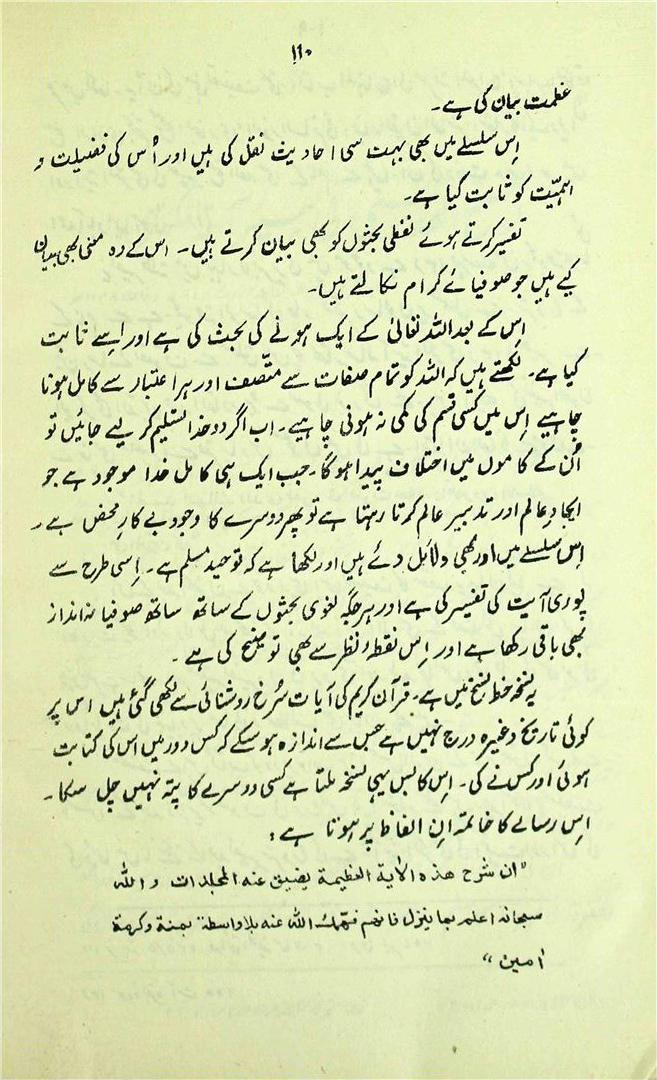 ۱۱۰
عظمت بیان کی ہے۔
اس سلسلے میں بھی بہت سی احادیث نقل کی ہیں اور اُس کی فضیلت و
اہمیّت کو ثابت کیا ہے۔
تفسیر کرتے ہوئے لفظی بحثوں کو بھی بیان کرتے ہیں۔ اس کے وہ معنی بھی بیان
کیے ہیں جو صوفیائے کرام نکالتے ہیں۔
اس کے بعد اللہ تعالیٰ کے ایک ہونے کی بحث کی ہے اور اسے ثابت
کیا ہے۔ لکھتے ہیں کہ اللہ کو تمام صفات سے متّصف اور ہر اعتبار سے کامل ہونا
چاہیے اس میں کسی قسم کی کمی نہ ہونی چاہیے۔ اب اگر دو خدا تسلیم کر لیے جائیں تو
اُن کے کاموں میں اختلاف پیدا ہو گا۔ جب ایک ہی کامل خدا موجود ہے جو
ایجادِ عالم اور تدبیر عالم کرتا رہتا ہے تو پھر دوسرے کا وجود بے کارِ محض ہے۔
اس سلسلے میں اور بھی دلائل دئے ہیں اور لکھا ہے کہ توحید مسلم ہے۔ اسی طرح سے
پوری آیت کی تفسیر کی ہے اور ہر جگہ لغوی بحثوں کے ساتھ ساتھ صوفیانہ انداز
بھی باقی رکھا ہے اور اس نقطۂ نظر سے بھی توضیح کی ہے۔
یہ نسخہ خط نسخ میں ہے۔ قرآن کریم کی آیات سُرخ روشنائی سے لکھی گئی ہیں اس پر
کوئی تاریخ وغیرہ درج نہیں ہے جس سے اندازہ ہو سکے کہ کس دور میں اس کی کتابت
ہوئی اور کس نے کی۔ اس کا بس یہی نسخہ ملتا ہے کسی دوسرے کا پتہ نہیں چل سکا۔
اس رسالے کا خاتمہ ان الفاظ پر ہوتا ہے:
"ان شرح هذه الأية العظيمة يضيق عنه المجلدات و الله
سبحانه اعلم بما ينزل فافهم فهمك الله عنه بلا واسطة بمنة وكرمة
أمين"